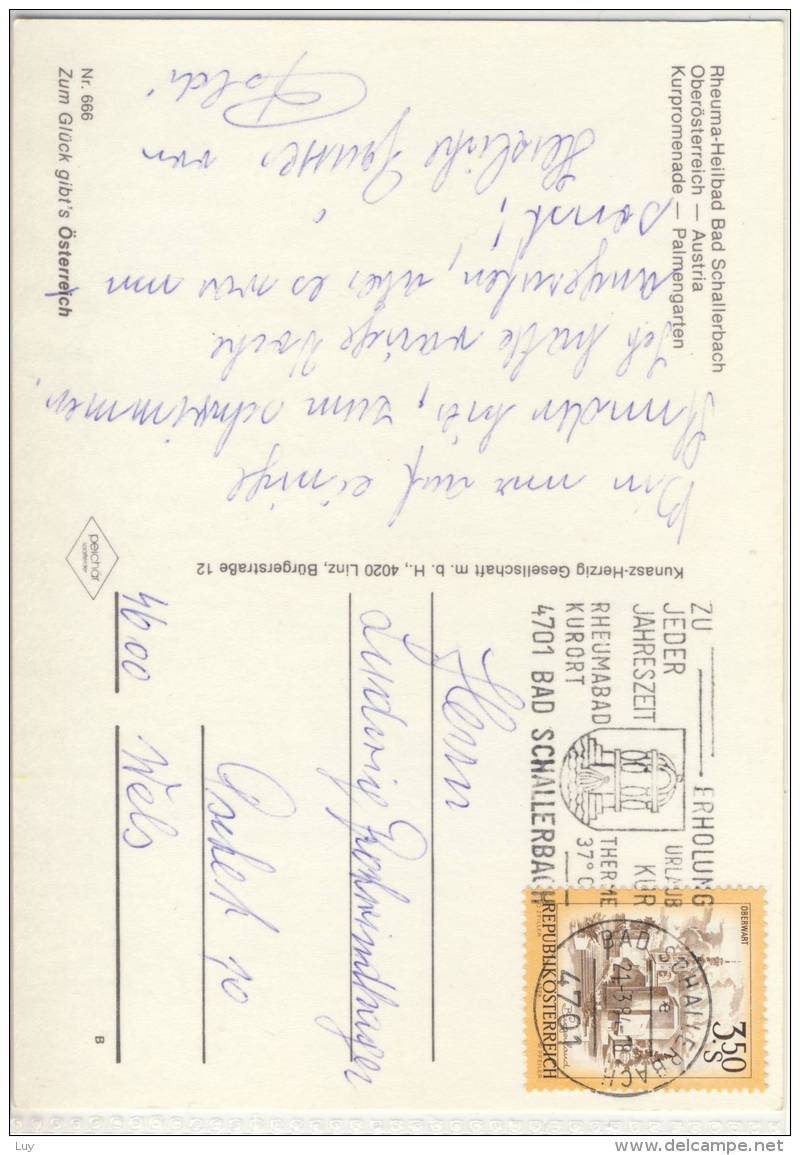 Rheuma-Heilbad Bad Schallerbach
Oberösterreich — Austria
Kurpromenade — Palmengarten
Bin nur auf einige
Stunden hier, zum schwimmen.
Ich hatte vorige Woche
angerufen, aber es war um
sonst!
Herzliche Grüsse von
Poldi
Nr. 666
Zum Glück gibt's Österreich
Kunasz-Herzig Gesellschaft m. b. H., 4020 Linz, Bürgerstraße 12
peichär
ZU JEDER JAHRESZEIT
ERHOLUNG
URLAUB
KUR
RHEUMABAD
KURORT
THERME
37°C
4701 BAD SCHALLERBACH
OBERWART
3.50
S
REPUBLIK ÖSTERREICH
BAD SCHALLERBACH
4701
e
Herrn
Ludwig
4600 Wels
B
Luy
www.delcampe.net